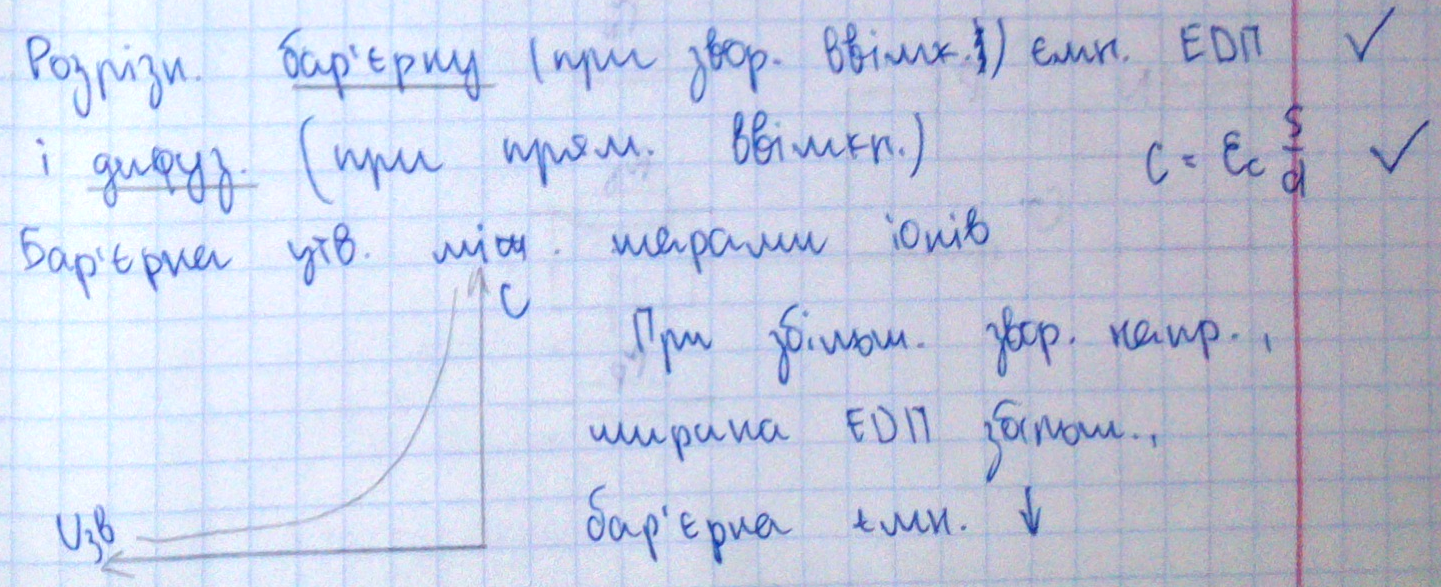 Розрізн. бар'єрну (при звор. ввімк.) ємн. ЕДП ✓
і дифуз. (при прям. ввімкн.) C = εc S/d ✓
Бар'єрна утв. між. шарами іонів
C
При збільш. звор. напр.,
ширина ЕДП збільш.,
Uзв бар'єрна ємн. ↓